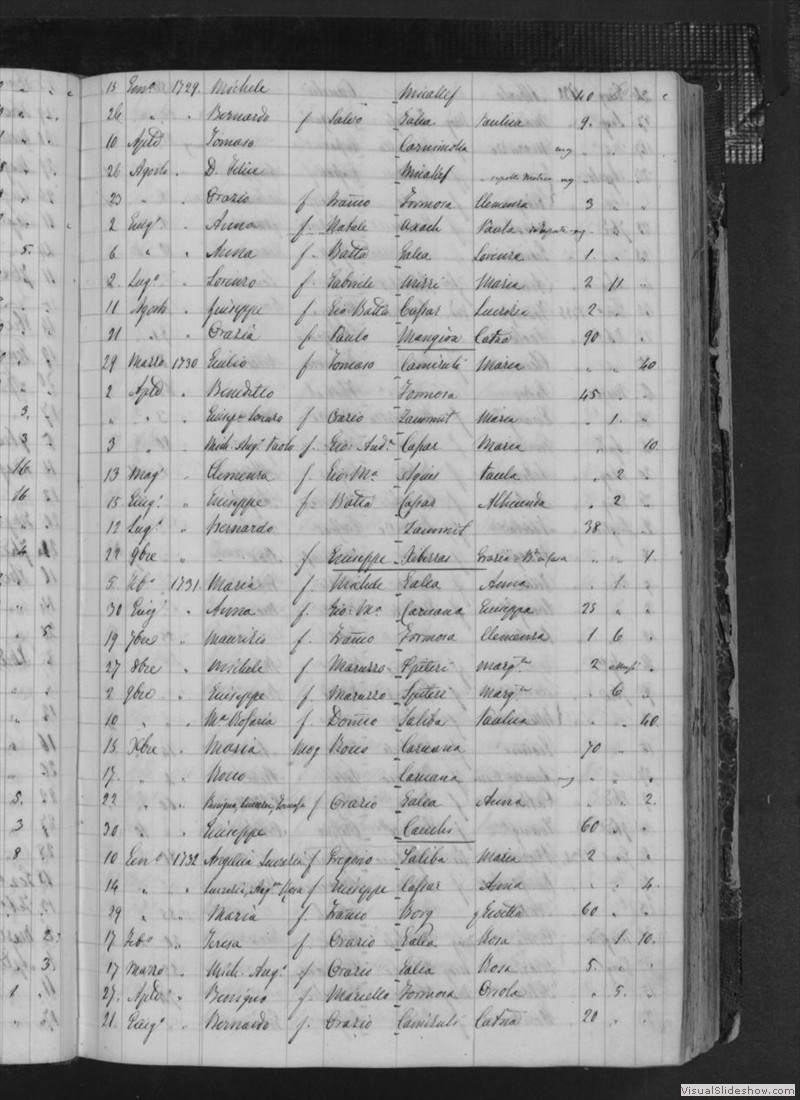 15 Genº 1729 Michele Micalef 40
26 " " Bernardo f Salvo Galea Paulica 9
10 Aple Tomaso my
26 Agosto " D. Felice Micalef my
23 " " Orazio f Formosa Clemenza 3
2 Giugº " Anna f Natale Axach Paula
6 " " Anna f Batta Galea Lorenza 1
2 Lugº " Lorenzo f Gabriele Mizzi Maria 2 11
11 Agosto " Giuseppe f Gio Batta Caspar Lucrezia 2
21 " " Grazia f Paulo Mangion Catna 90
29 Marzo 1730 Giulio f Tomaso Camizuli Maria " " 40
2 Aple " Benedetto Formosa 45
" " " f Orazio Zammit Maria " 1
3 " Mich. Angº Paolo f Gio Andª Caspar Maria " 10
13 Magº " Clemenza f Gio Mª Agius Paula " 2
15 Giugº " Giuseppe f Batta Caspar " 2
12 Lugº " Bernardo Zammit 38
22 9bre " f Giuseppe Xiberras Grazia " " 1
5 Febº 1731 Maria f Michele Galea Anna " 1
30 Giugº " Anna f Gio Mª Caruana Giuseppa 25
19 7bre " Maurizio f Formosa Clemenza 1 6
27 8bre " Michele f Maruzzo Spiteri Margta 2
2 9bre " Giuseppe f Maruzzo Spiteri Margta " 6
10 " " Mª Rosaria f Domco Saliba Paulica " " 40
15 Xbre " Maria mog Rocco Caruana 70
17 " " Rocco Caruana my
22 " " f Orazio Galea Anna " " 2
30 " Giuseppe Cauchi 60
10 Genº 1732 Angelica Lucrezia f Gregorio Saliba Maria 2
14 " " f Giuseppe Caspar Anna " " 4
29 " " Maria f Franco Borg 60
17 Febº " Teresa f Orazio Galea Rosa " 1 10
17 Marzo " Mich. Angº f Orazio Galea Rosa 5
27 Aple " Benigno f Marcello Formosa " 5
21 Giugº " Bernardo f Orazio Camizuli Catna 20
VisualSlideshow.com